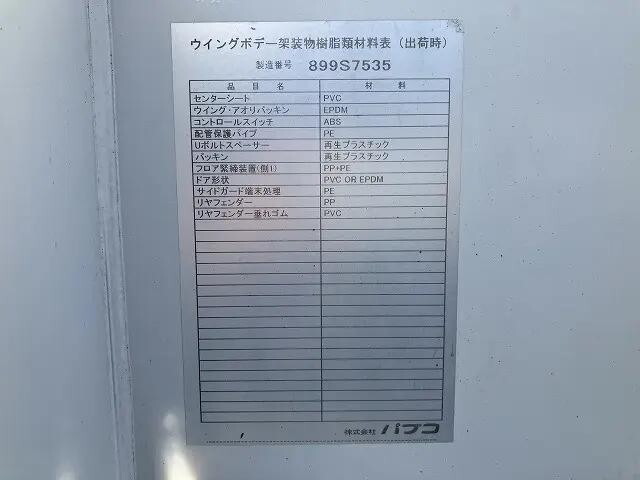 ウイングボデー架装物樹脂類材料表（出荷時）
製造番号 899S7535
品目名 材料
センターシート PVC
ウイング・アオリパッキン EPDM
コントロールスイッチ ABS
配管保護パイプ PE
Uボルトスペーサー 再生プラスチック
パッキン 再生プラスチック
フロア緊締装置(側1) PP+PE
ドア形状 PVC OR EPDM
サイドガード端末処理 PE
リヤフェンダー PP
リヤフェンダー垂れゴム PVC
株式会社 パブコ